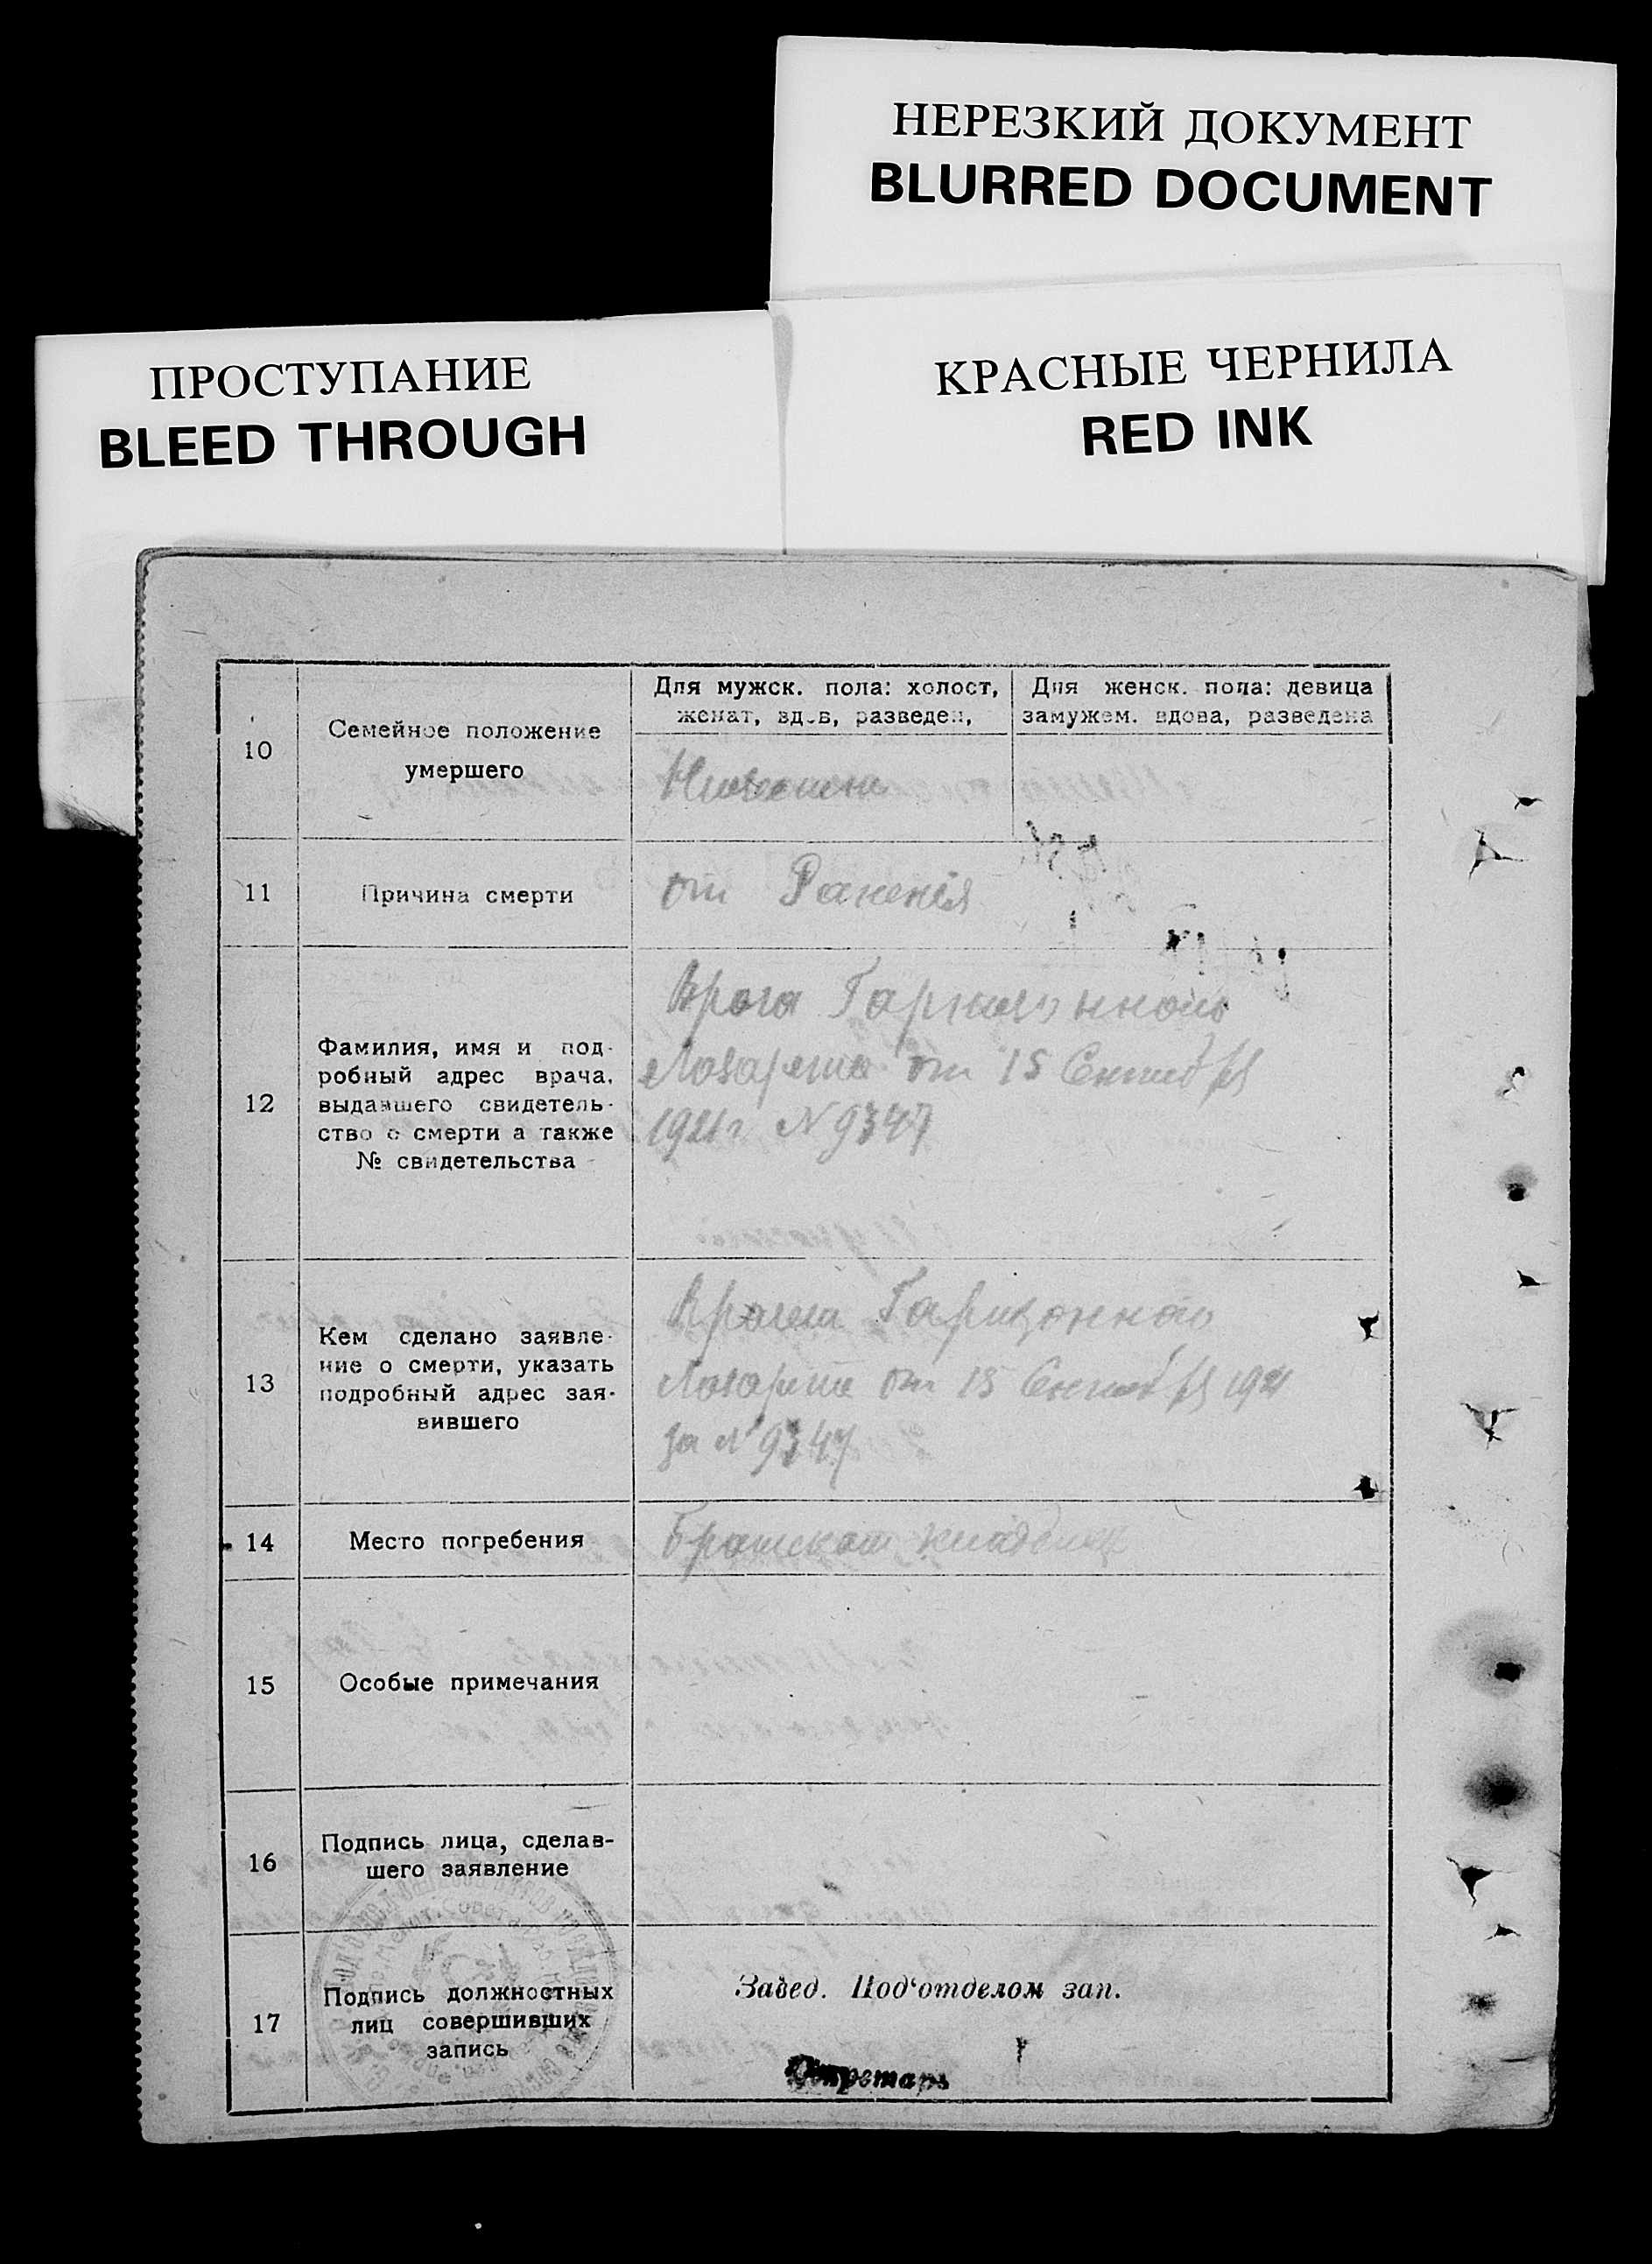 НЕРЕЗКИЙ ДОКУМЕНТ
BLURRED DOCUMENT
КРАСНЫЕ ЧЕРНИЛА
RED INK
ПРОСТУПАНИЕ
BLEED THROUGH
10
Семейное положение
умершего
Для мужск. пола: холост,
женат, вдов, разведен,
Для женск. пола: девица
замужем. вдова, разведена
11
Причина смерти
от Раненія
12
Фамилия, имя и под-
робный адрес врача,
выдавшего свидетель-
ство о смерти а также
№ свидетельства
Врача
Лазарета от 15 Сентября
1921 г N 9347
13
Кем сделано заявле-
ние о смерти, указать
подробный адрес зая-
вившего
Гарнизонного
Лазарета от 15 Сентября 1921
за N 9347
14
Место погребения
Братском
15
Особые примечания
16
Подпись лица, сделав-
шего заявление
17
Подпись должностных
лиц совершивших
запись
Завед. Под‘отделом зап.
Секретарь